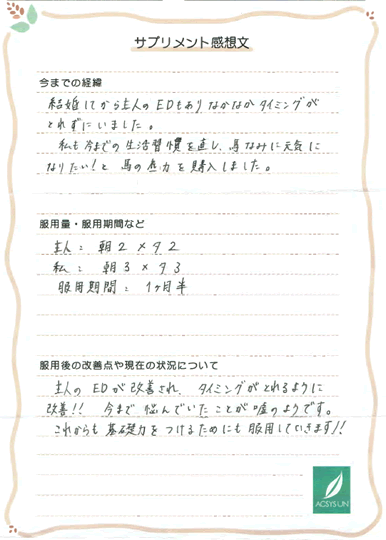 サプリメント感想文
今までの経緯
結婚してから主人のEDもありなかなかタイミングが
とれずにいました。
私も今までの生活習慣を直し、馬なみに元気に
なりたい!と馬の産力を購入しました。
服用量・服用期間など
主人: 朝2×夕2
私: 朝3×夕3
服用期間: 1ヶ月半
服用後の改善点や現在の状況について
主人のEDが改善され、タイミングがとれるように
改善!! 今まで悩んでいたことが嘘のようです。
これからも基礎力をつけるためにも服用していきます!!
ACSYSUN